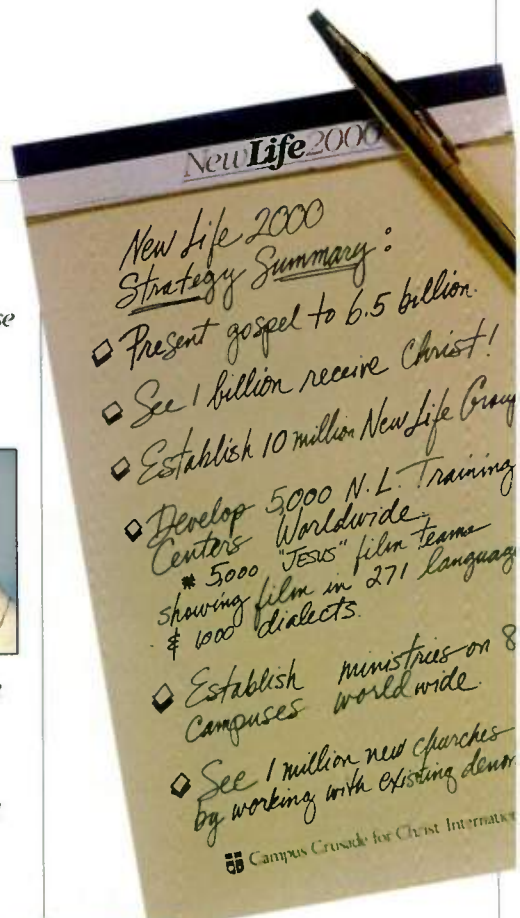 NewLife2000
New Life 2000
Strategy Summary:
Present gospel to 6.5 billion.
See 1 billion receive Christ!
Establish 10 million New Life Group
Develop 5,000 N.L. Training
Centers Worldwide.
* 5,000 "JESUS" film teams
showing film in 271 language
& 1000 dialects.
Establish ministries on 8
Campuses worldwide.
See 1 million new churches
by working with existing denom
Campus Crusade for Christ Internation
se